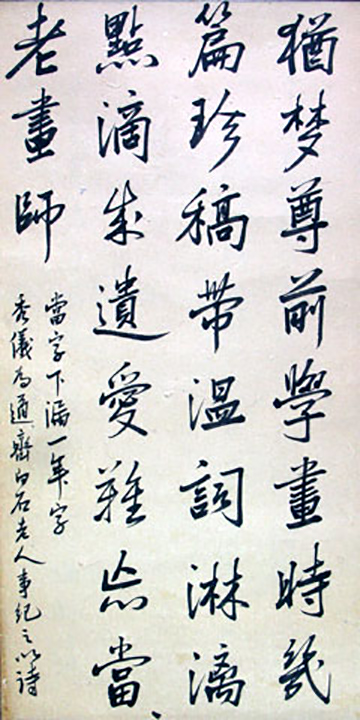 猶梦尊前學畫時幾
篇珍稿带溫詞淋漓
點滴成遺愛難忘當、
老畫師
當字下漏一年字
秀儀為道齊白石老人事紀之以詩